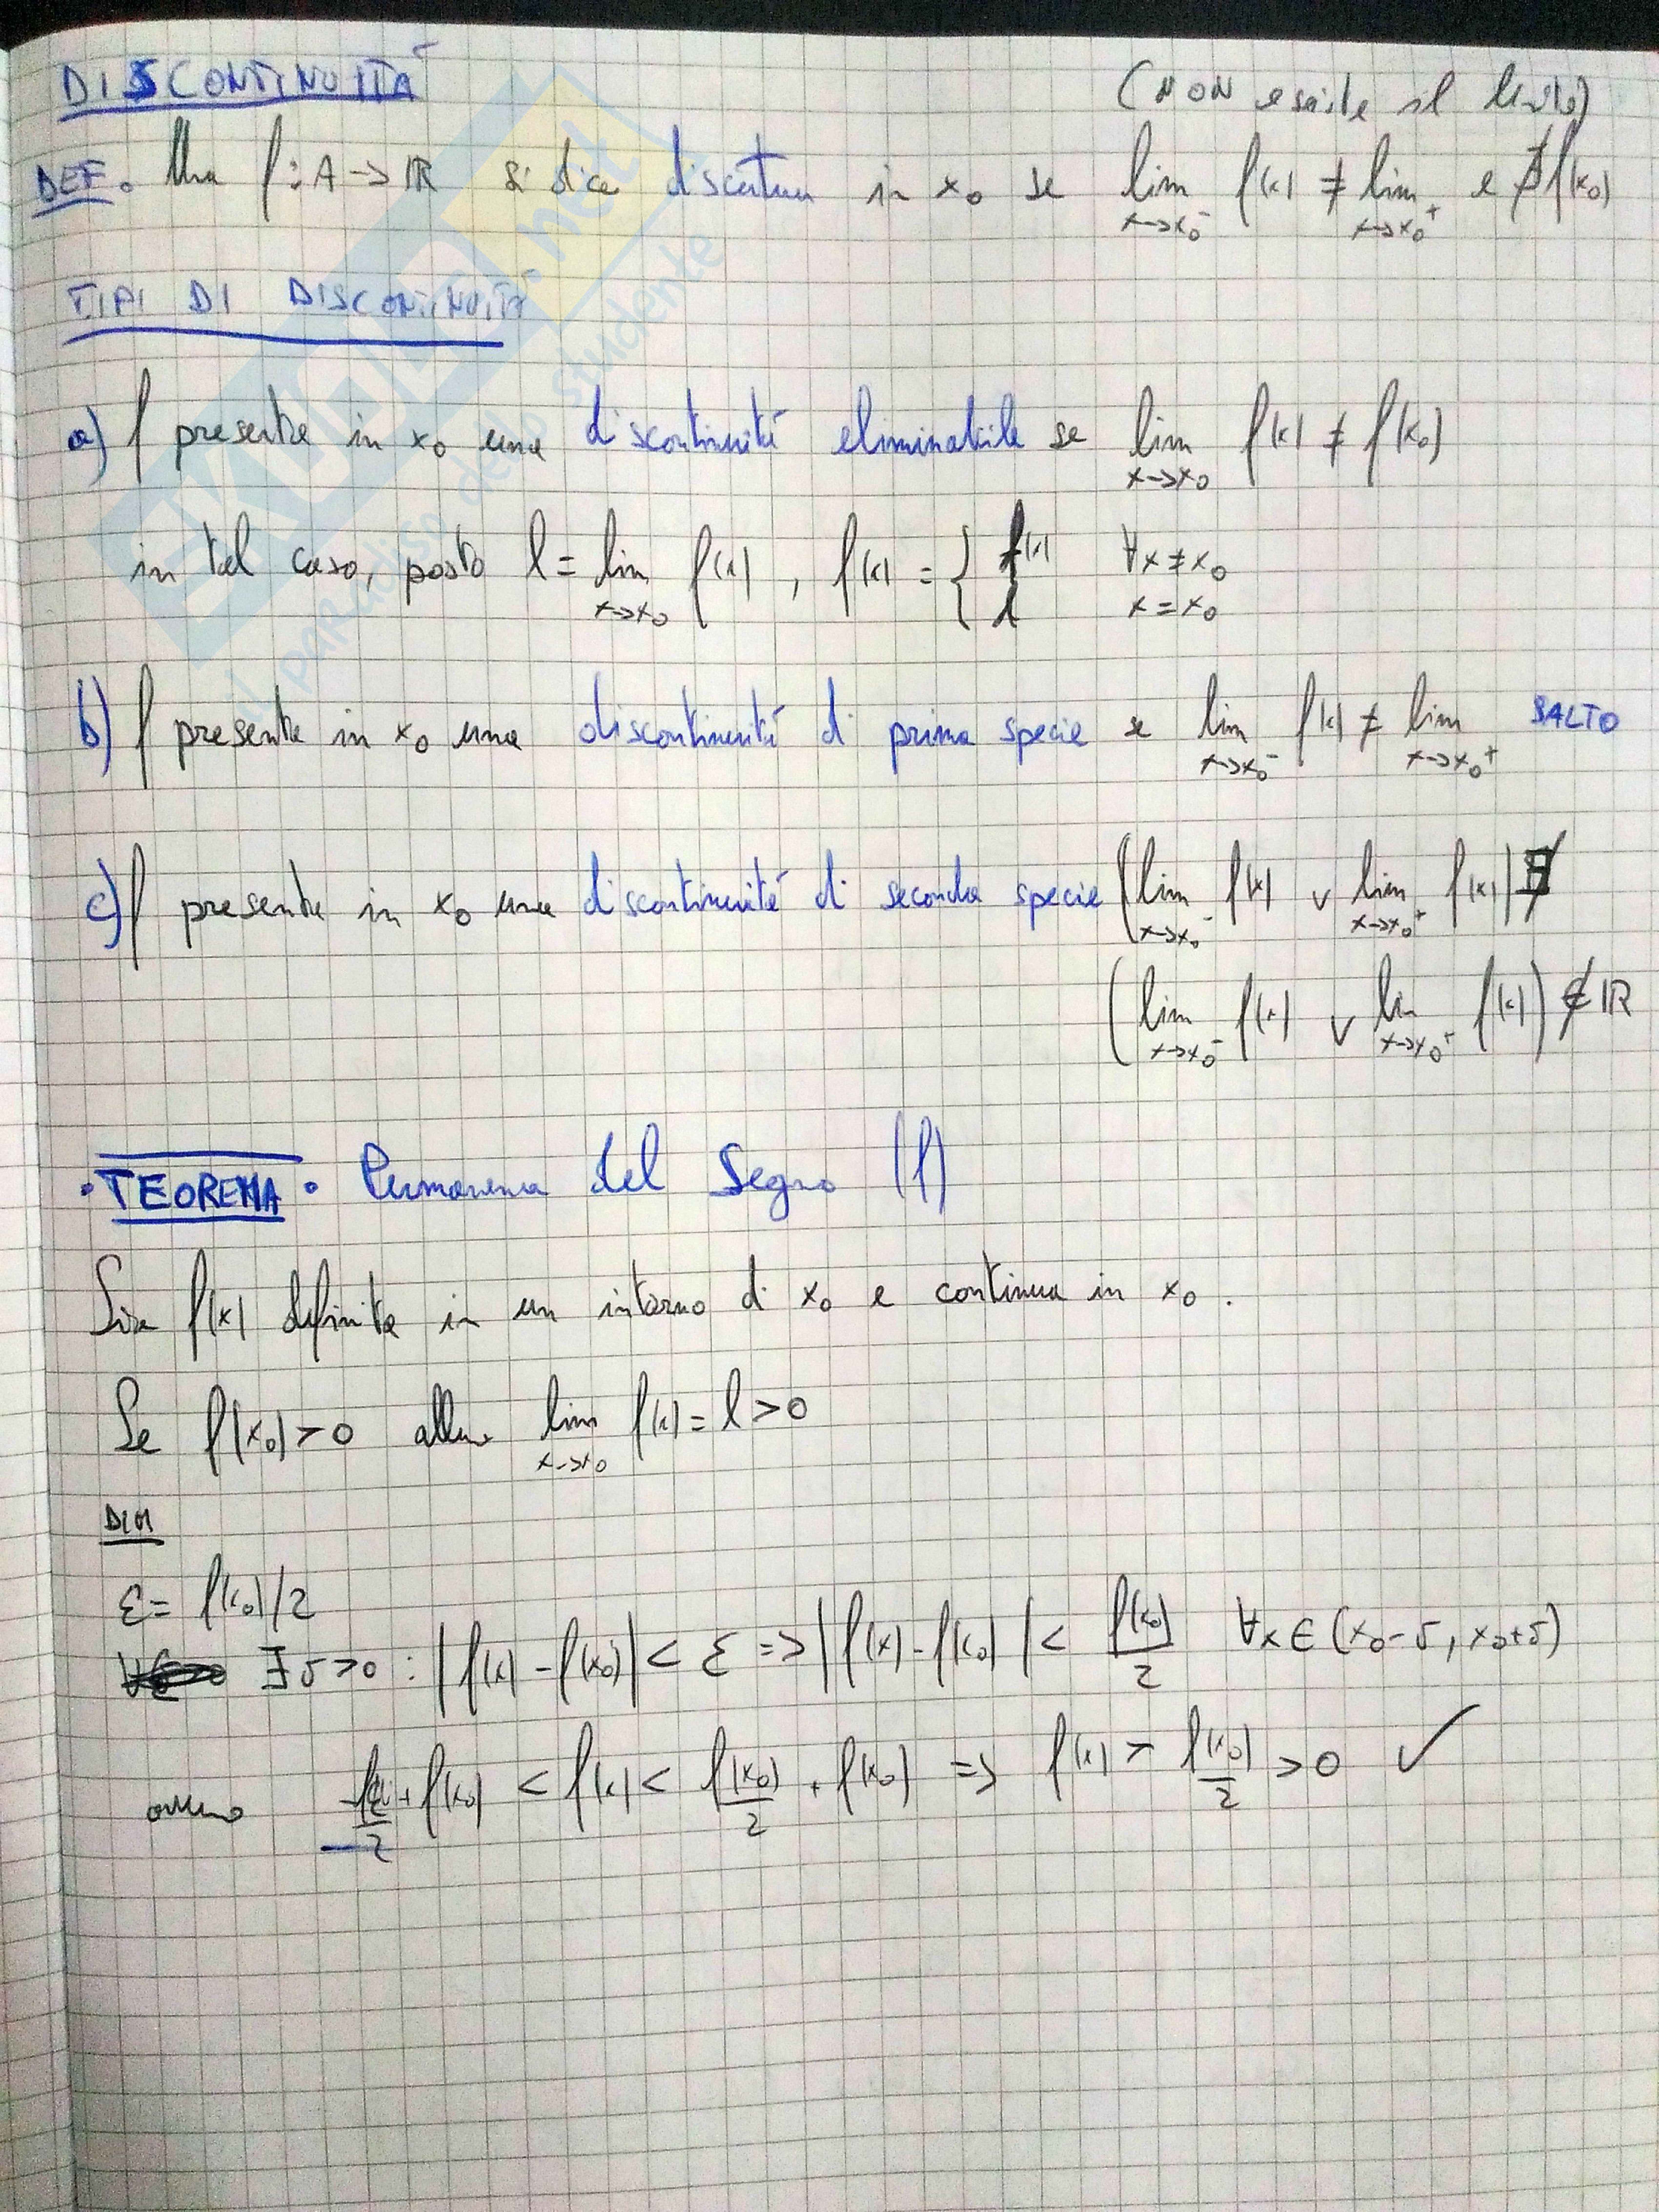 DISCONTINUITÀ
(NON esiste il limite)
DEF. Una f: A -> ℝ si dice discontinua in x₀ se lim x->x₀⁻ f(x) ≠ lim x->x₀⁺ e ∄ f(x₀)
TIPI DI DISCONTINUITÀ
a) f presenta in x₀ una discontinuità eliminabile se lim x->x₀ f(x) ≠ f(x₀)
in tal caso, posto l = lim x->x₀ f(x), f(x) = { f(x) ∀x≠x₀
l x=x₀
b) f presenta in x₀ una discontinuità di prima specie se lim x->x₀⁻ f(x) ≠ lim x->x₀⁺ SALTO
c) f presenta in x₀ una discontinuità di seconda specie (lim x->x₀⁻ f(x) ∨ lim x->x₀⁺ f(x)) ∄
(lim x->x₀⁻ f(x) ∨ lim x->x₀⁺ f(x)) ∉ ℝ
• TEOREMA • Permanenza del Segno (f)
Sia f(x) definita in un intorno di x₀ e continua in x₀.
Se f(x₀)>0 allora lim x->x₀ f(x) = l > 0
DIM
ε = f(x₀)/2
∃ δ>0 : |f(x) - f(x₀)| < ε => |f(x) - f(x₀)| < f(x₀)/2 ∀x ∈ (x₀-δ, x₀+δ)
ovvero + f(x₀) < f(x) < f(x₀)/2 + f(x₀) => f(x) > f(x₀)/2 > 0 ✓
SKUOLA.net
il paradiso dello studente